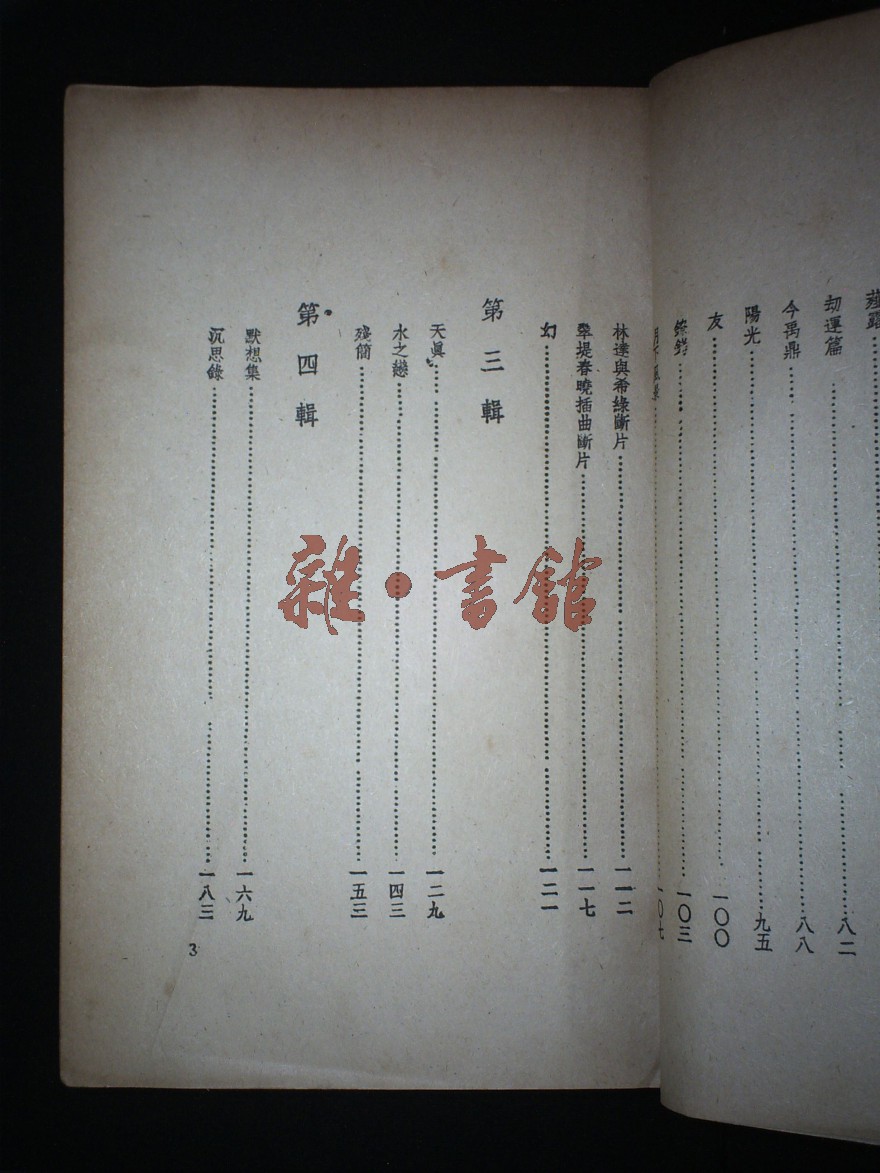 劫運篇……八二
今禹鼎……八八
陽光……九五
友……一〇〇
……一〇三
……一〇七
林達與希綠斷片……一一二
翠堤春曉插曲斷片……一一七
幻……一二一
第三輯
天眞……一二九
水之戀……一四三
殘簡……一五三
第四輯
默想集……一六九
沉思錄……一八三
3
雜·書館